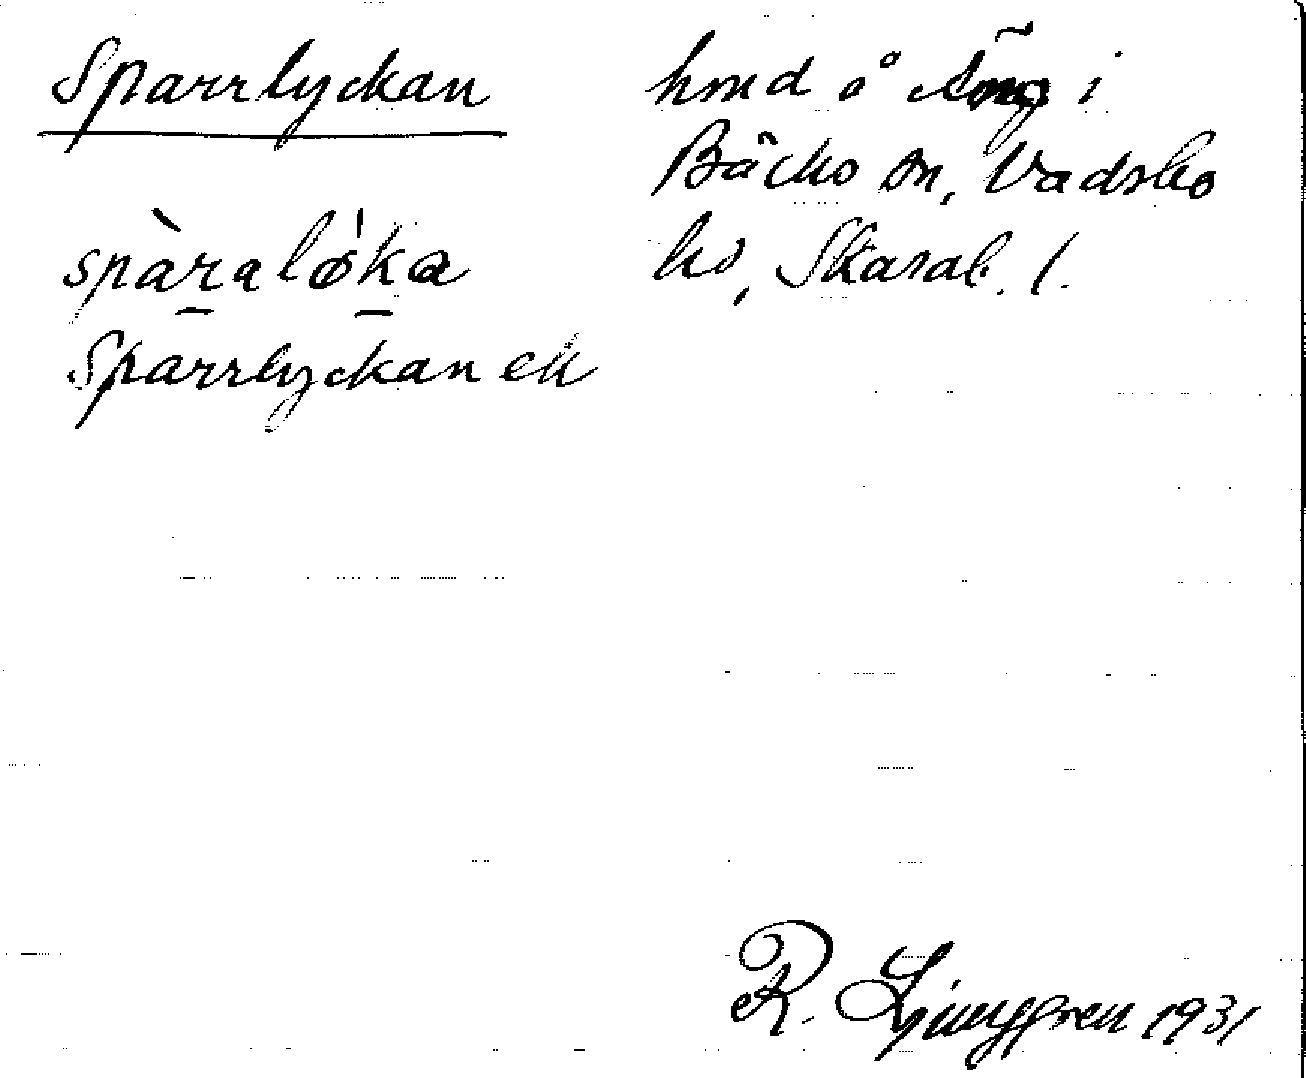 Sparrlyckan
spàralǿka
Sparrlyckan ek
hmd å i
Bäcks sn, Vadsbo
hd, Skarab. l.
R. Ljunggren 1931